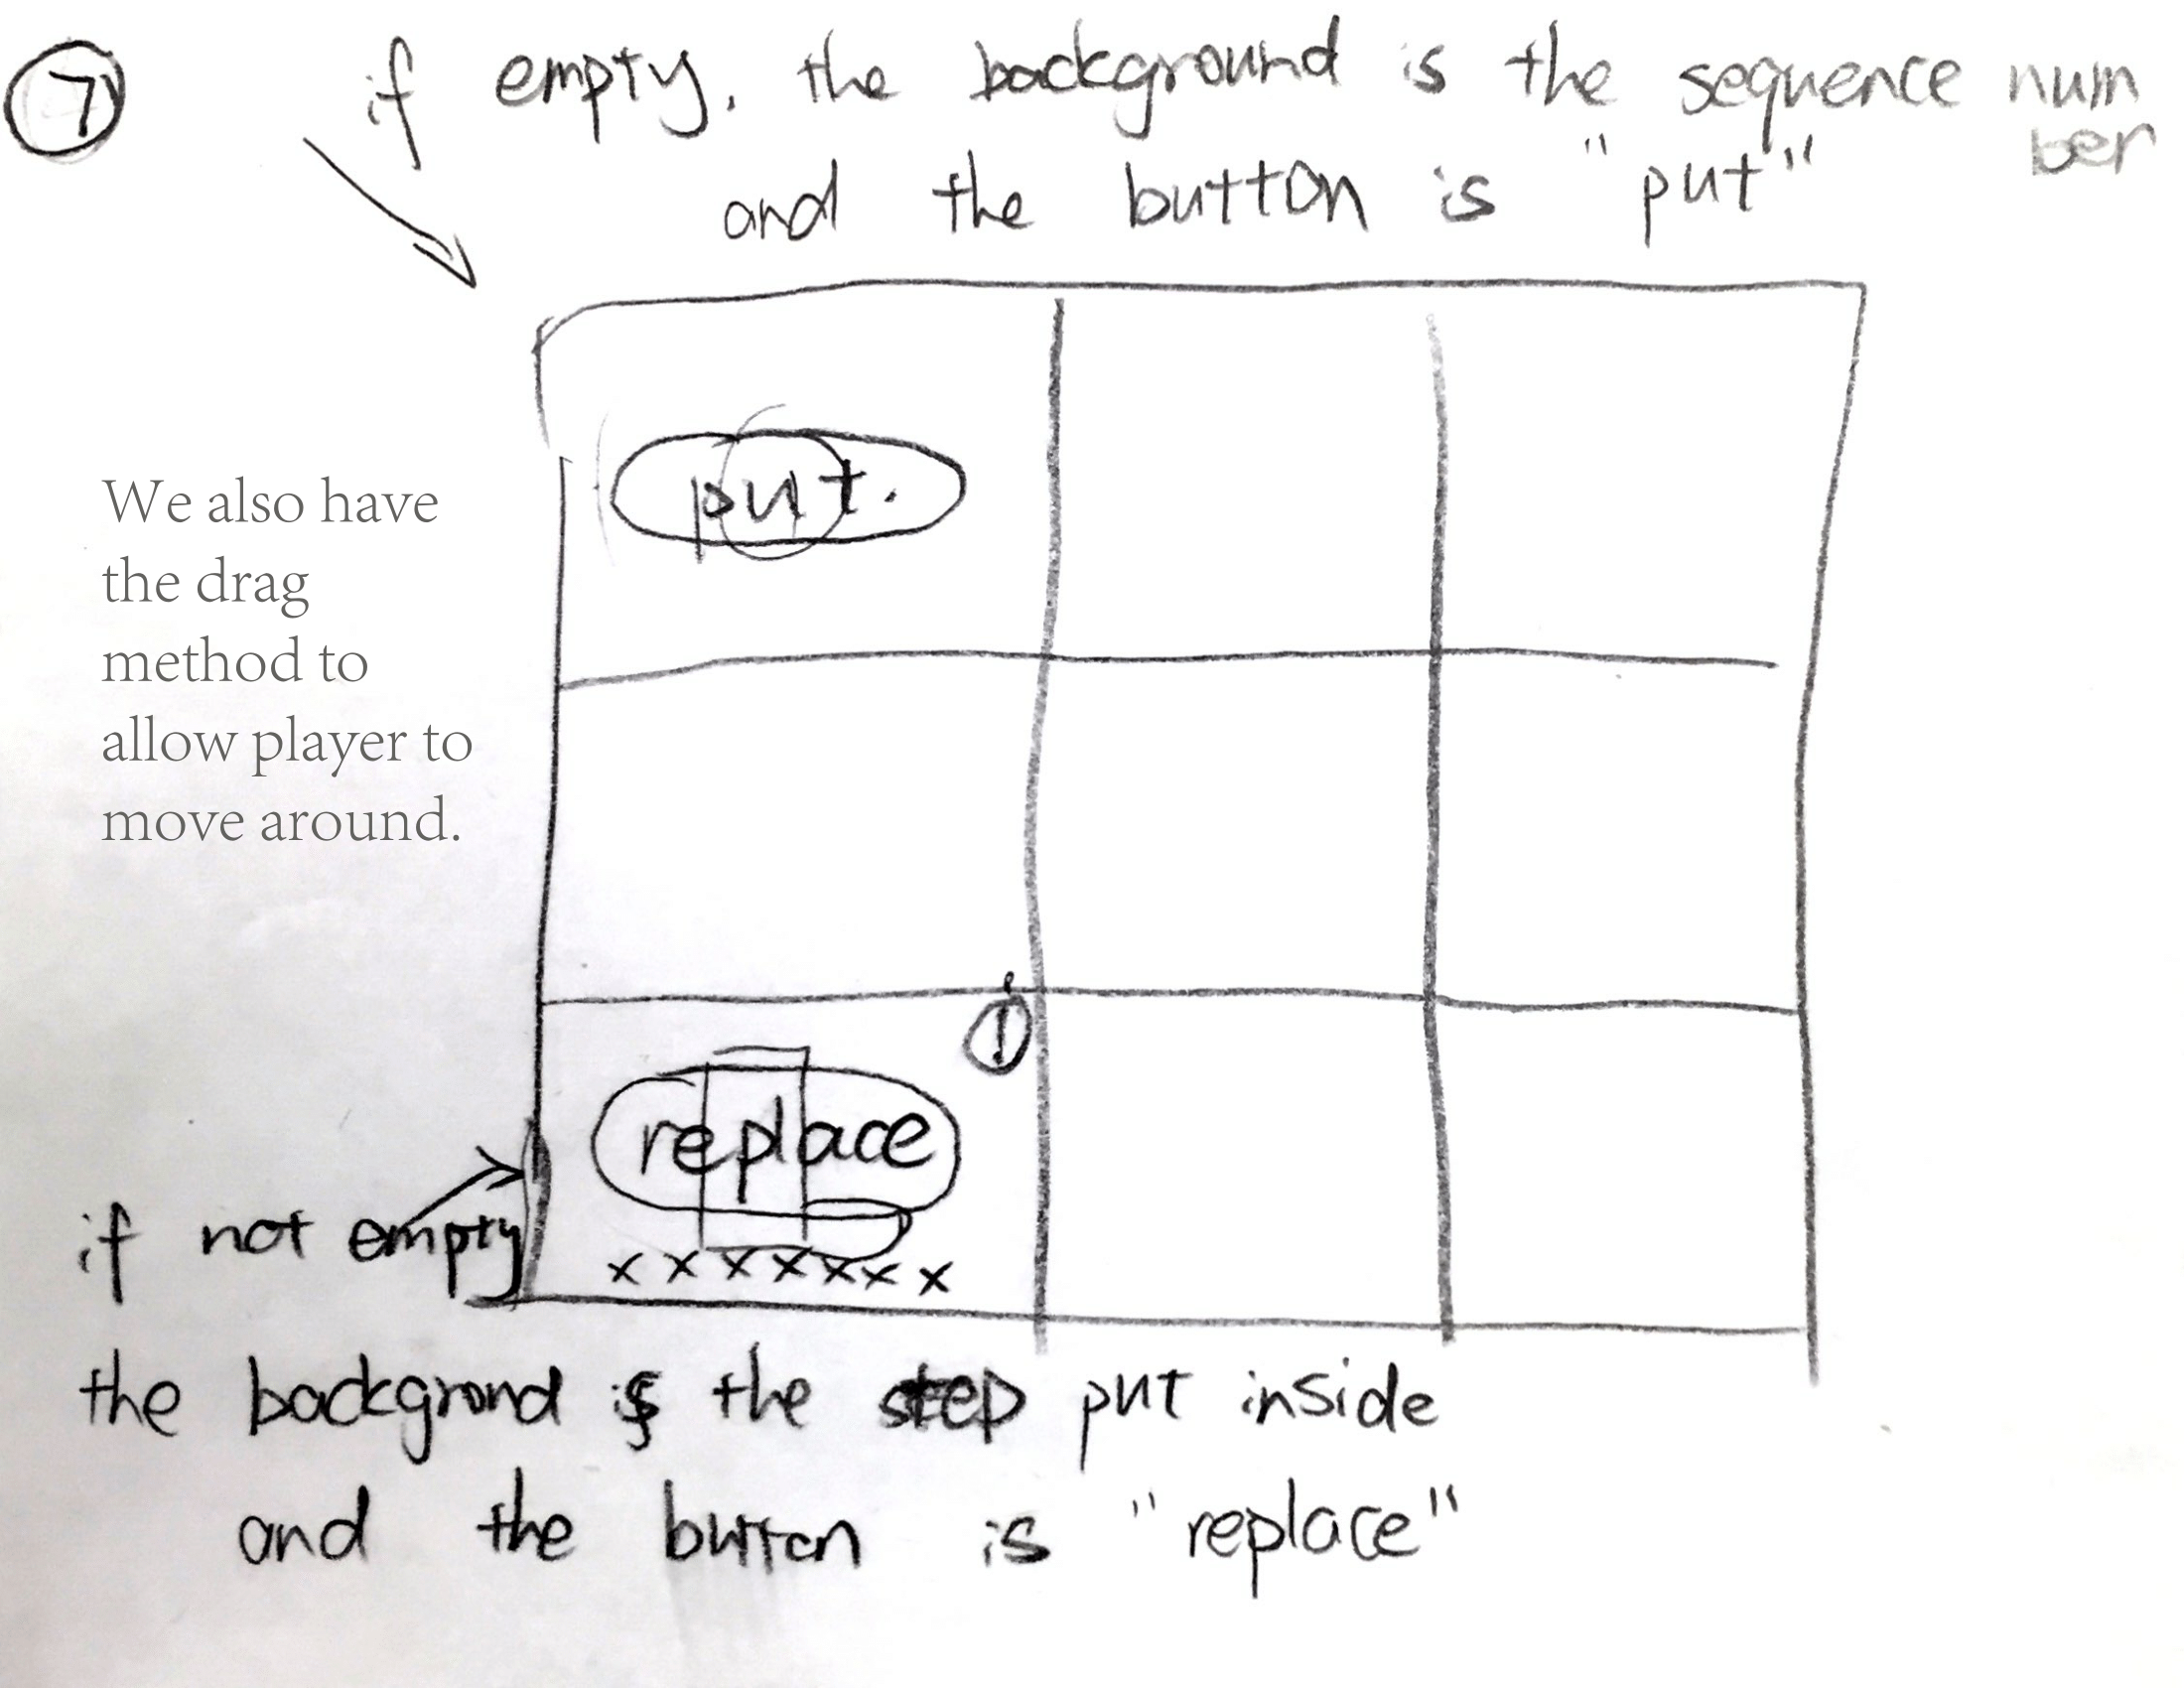 7
if empty, the background is the sequence num
ber
and the button is "put"
put.
We also have
the drag
method to
allow player to
move around.
replace
if not empty
x x x x x x x
the backgrond is the step put inside
and the button is "replace"